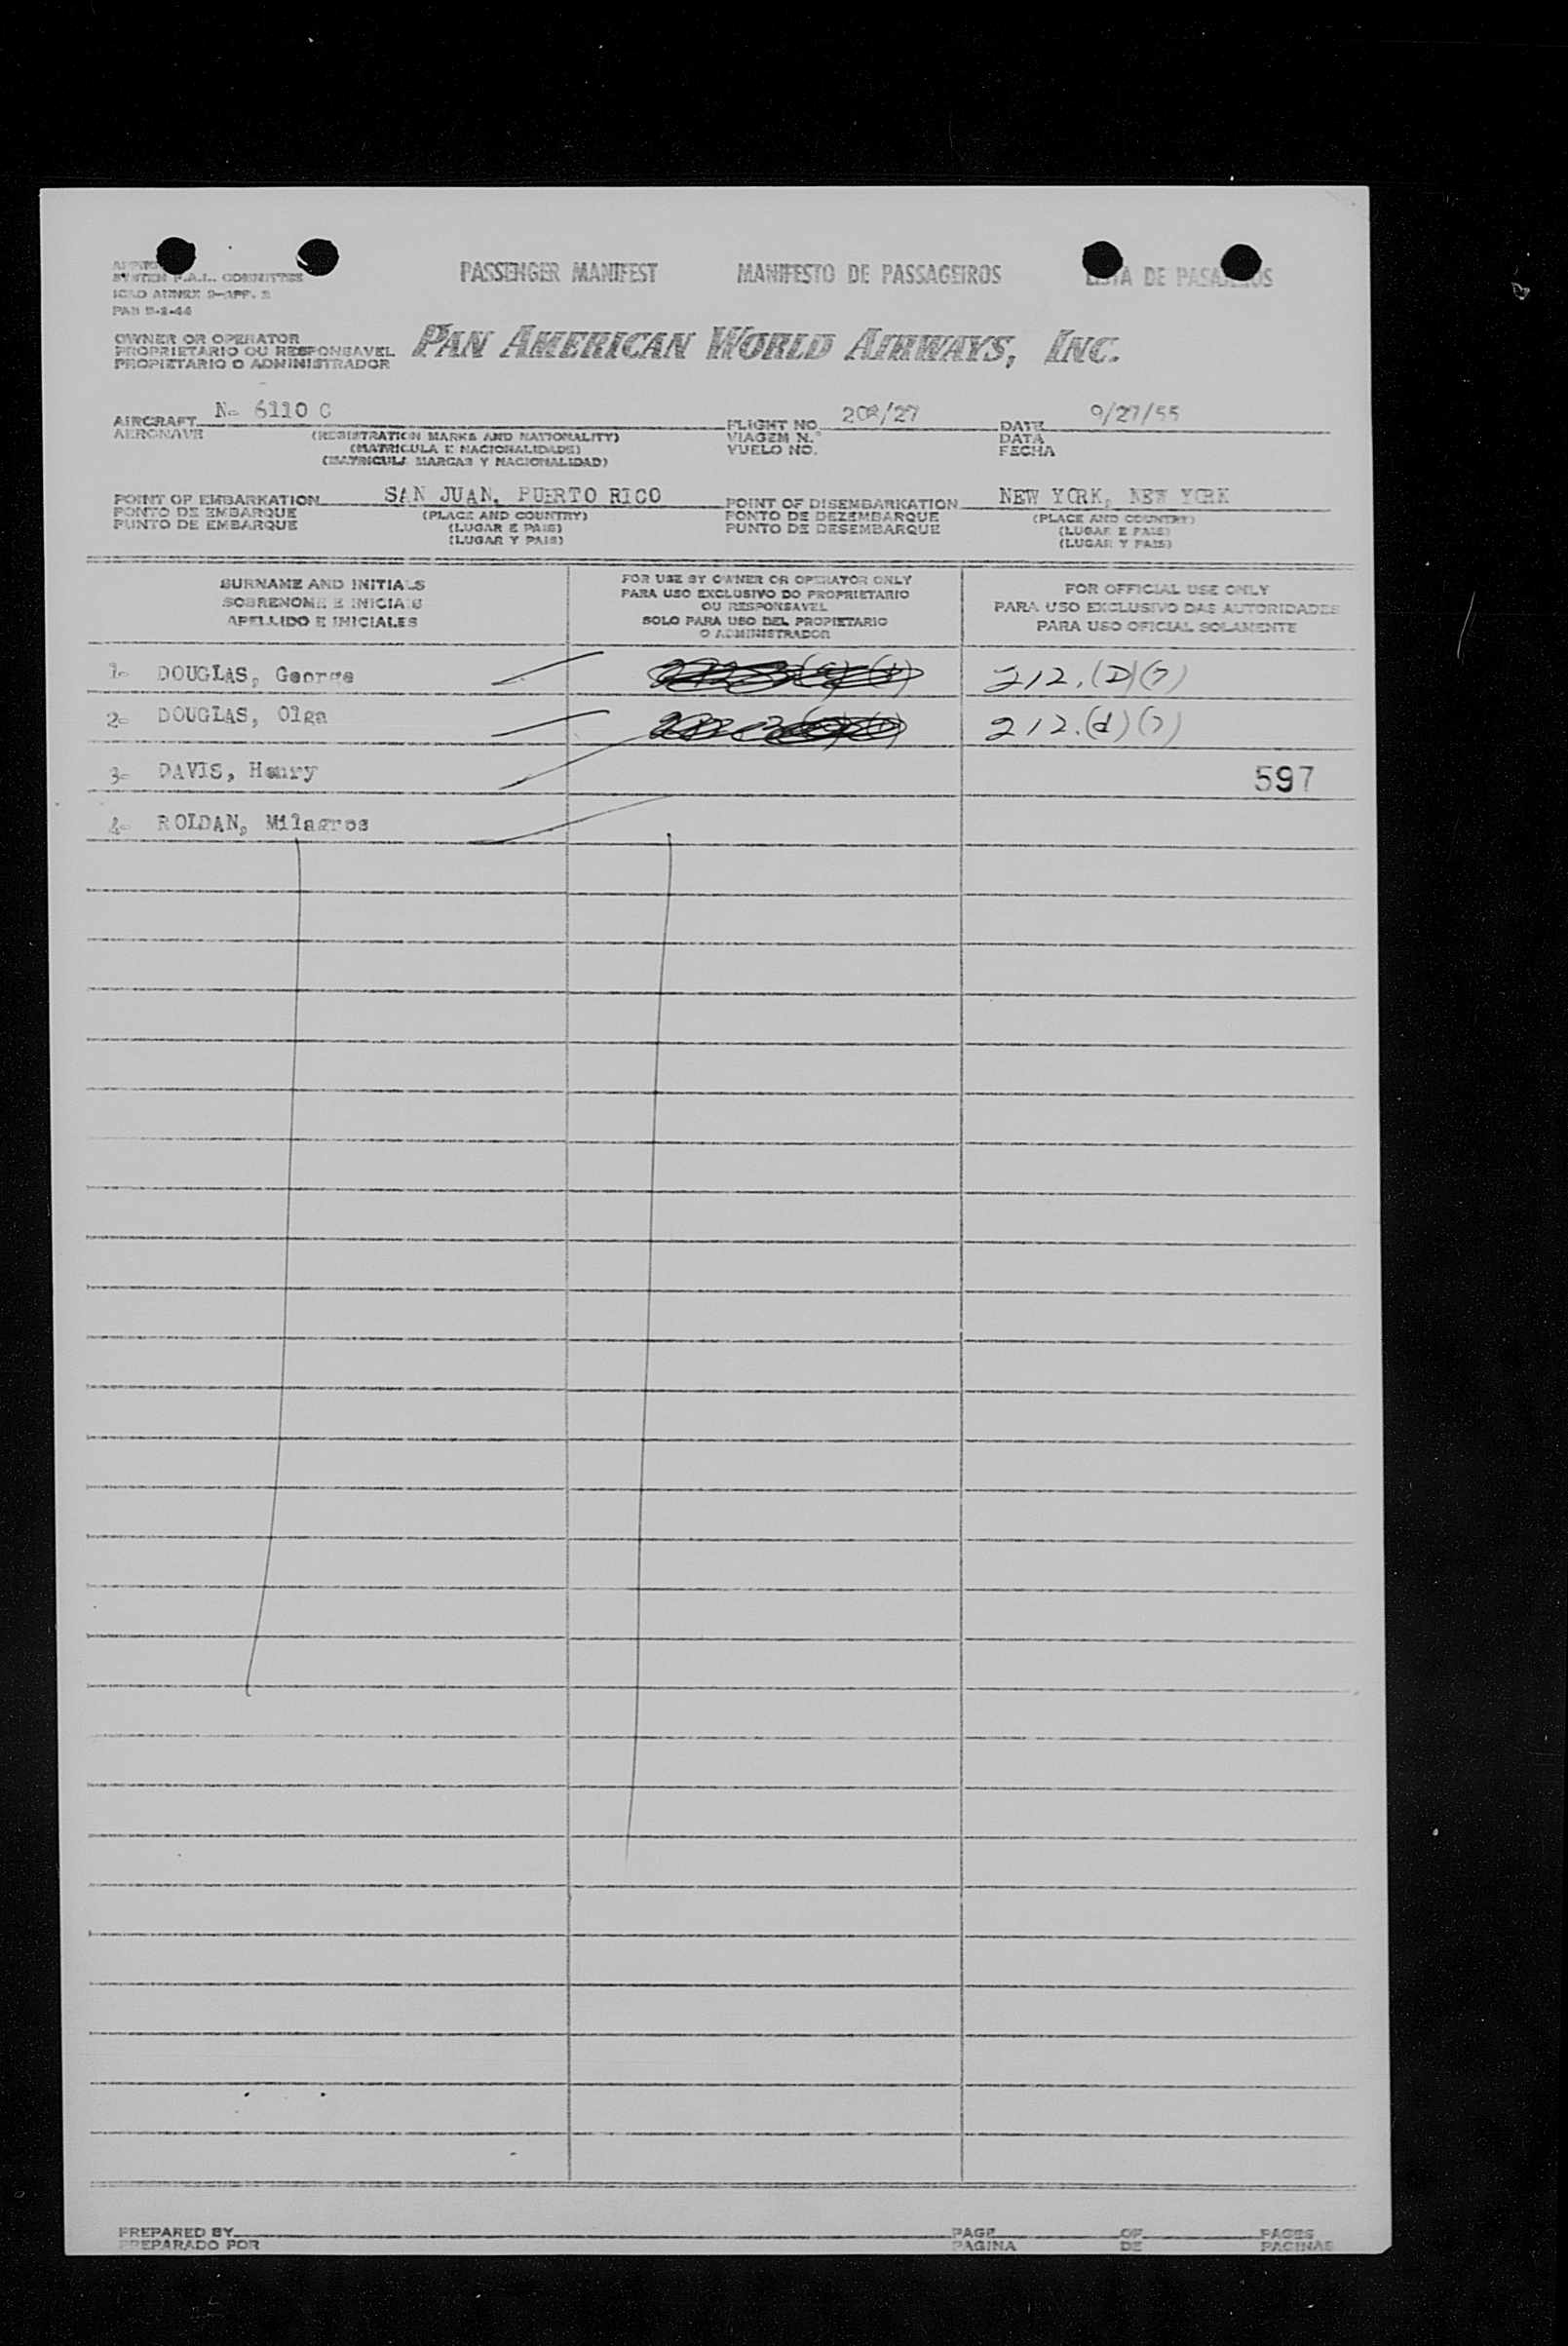 PASSENGER MANIFEST MANIFESTO DE PASSAGEIROS LISTA DE PASAJEROS
SYSTEM F.A.L. COMMITTEE
ICAO ANNEX 9-APP. 2
OWNER OR OPERATOR
PROPRIETARIO OU RESPONSAVEL
PROPIETARIO O ADMINISTRADOR
PAN AMERICAN WORLD AIRWAYS, INC.
AIRCRAFT N- 6110 C FLIGHT NO. 208/27 DATE 9/27/55
AERONAVE (REGISTRATION MARKS AND NATIONALITY) VIAGEM N.° DATA
(MATRICULA E NACIONALIDADE) VUELO NO. FECHA
(MATRICULA MARCAS Y NACIONALIDAD)
POINT OF EMBARKATION SAN JUAN, PUERTO RICO POINT OF DISEMBARKATION NEW YORK, NEW YORK
PONTO DE EMBARQUE (PLACE AND COUNTRY) PONTO DE DEZEMBARQUE (PLACE AND COUNTRY)
PUNTO DE EMBARQUE (LUGAR E PAIS) PUNTO DE DESEMBARQUE (LUGAR E PAIS)
(LUGAR Y PAIS) (LUGAR Y PAIS)
SURNAME AND INITIALS
SOBRENOME E INICIAIS
APELLIDO E INICIALES
FOR USE BY OWNER OR OPERATOR ONLY
PARA USO EXCLUSIVO DO PROPRIETARIO
OU RESPONSAVEL
SOLO PARA USO DEL PROPIETARIO
O ADMINISTRADOR
FOR OFFICIAL USE ONLY
PARA USO EXCLUSIVO DAS AUTORIDADES
PARA USO OFICIAL SOLAMENTE
1- DOUGLAS, George 212.(D)(7)
2- DOUGLAS, Olga 212.(d)(7)
3- DAVIS, Henry 597
4- ROLDAN, Milagros
PREPARED BY PAGE OF PAGES
PREPARADO POR PAGINA DE PAGINAS